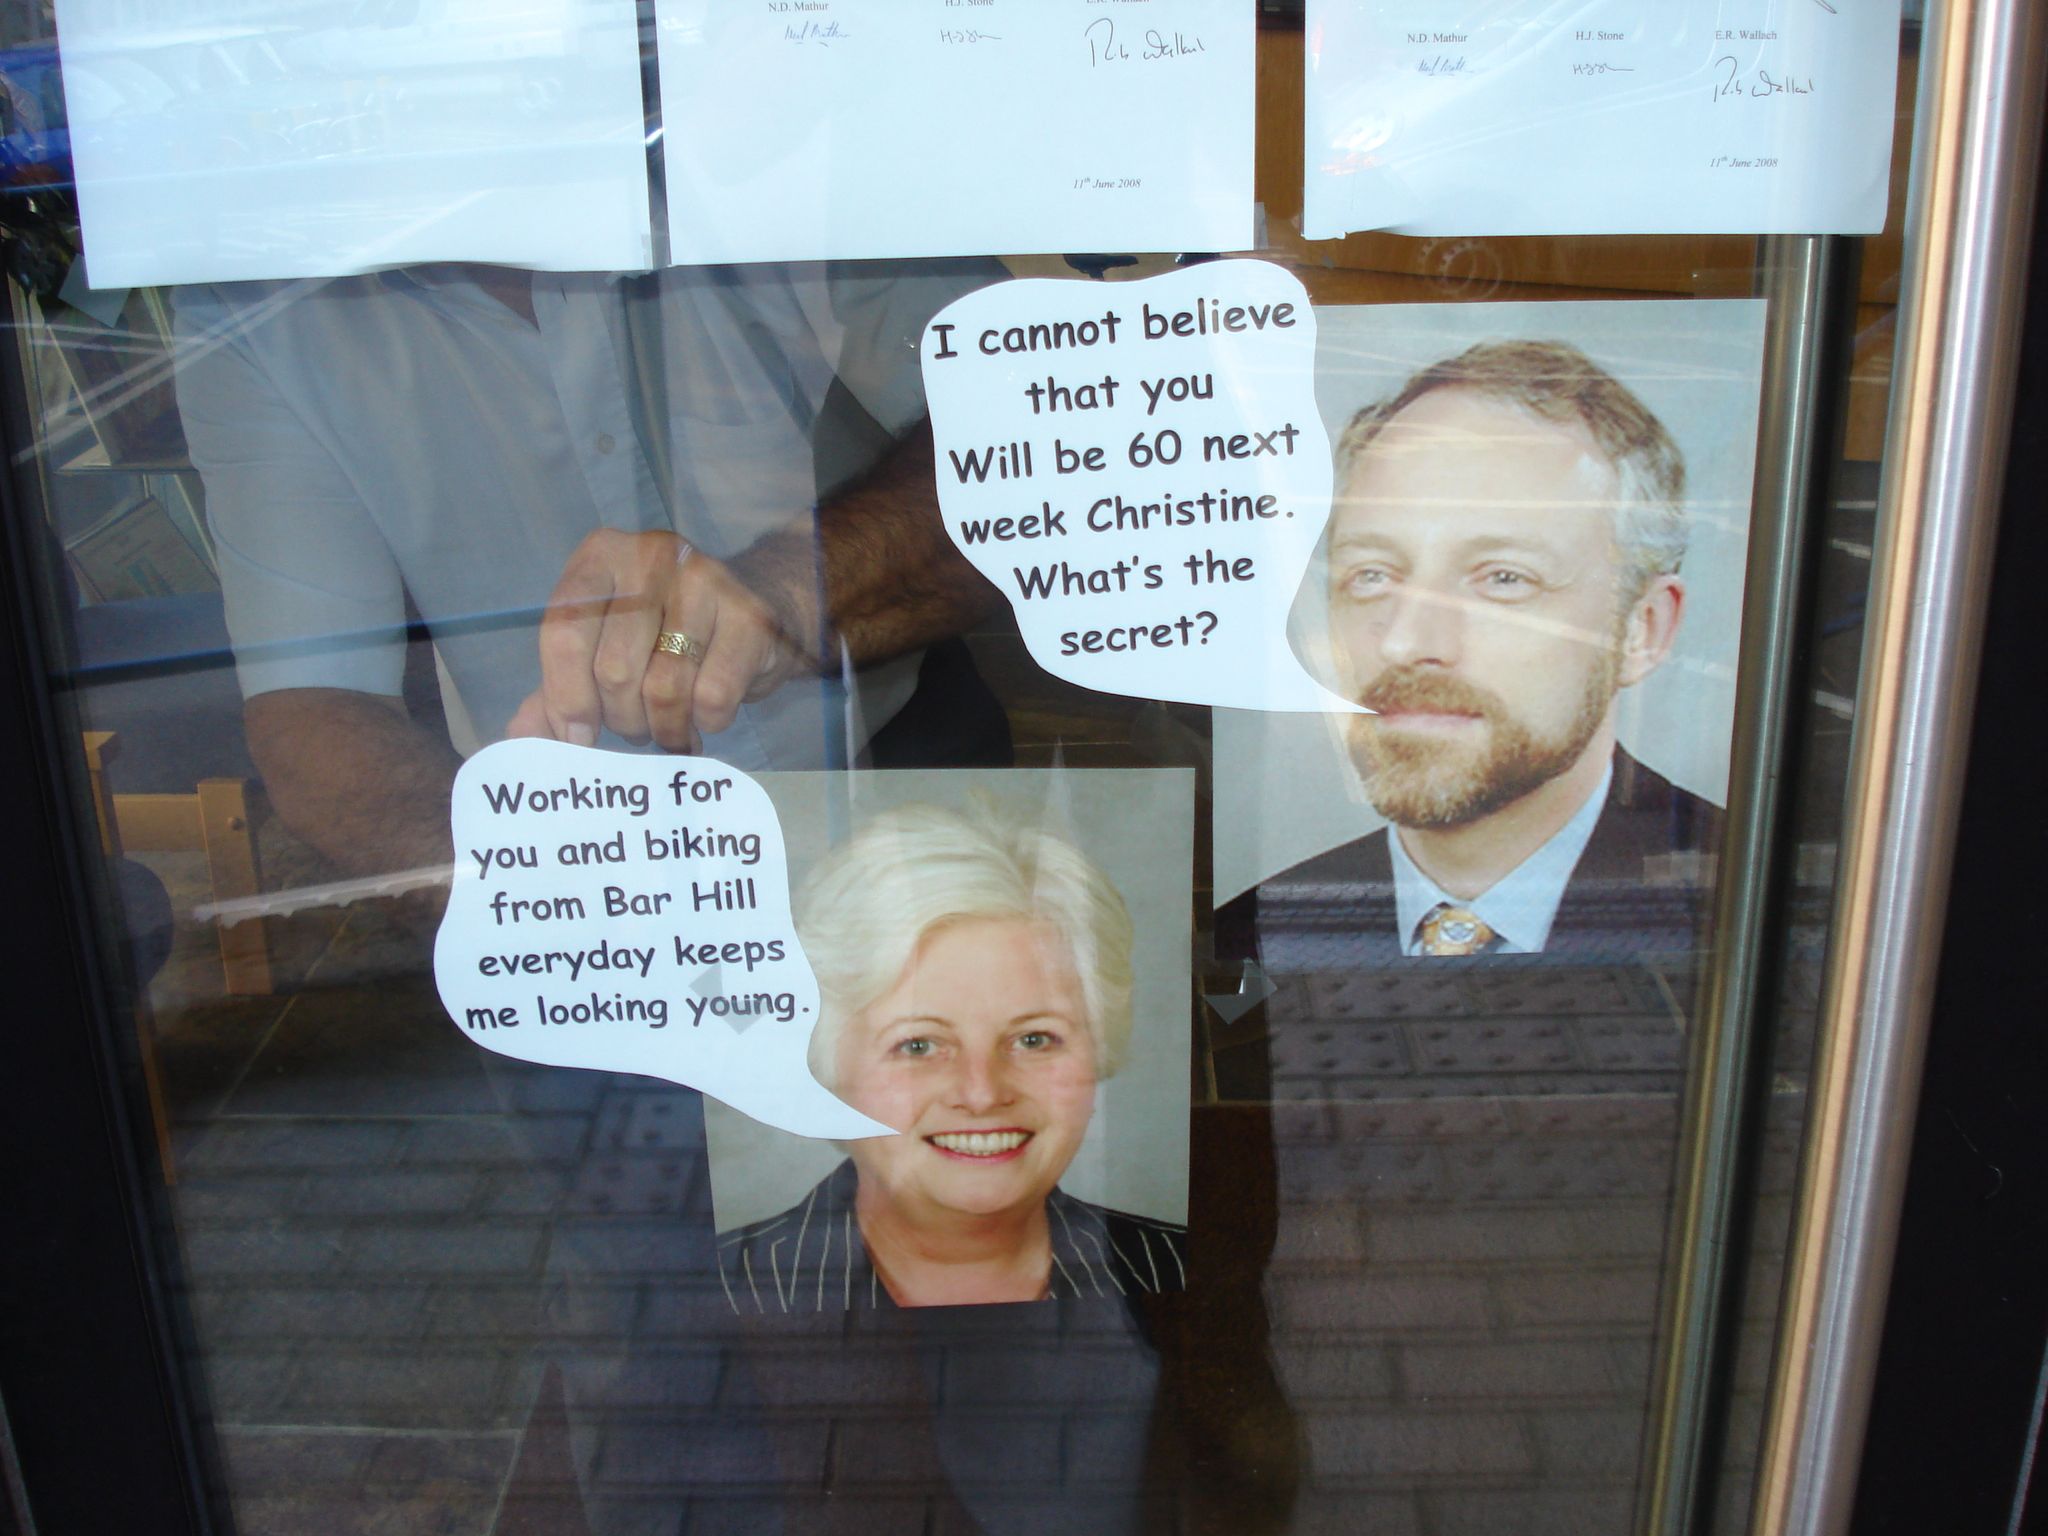 N.D. Mathur
H.J. Stone
E.R. Wallach
11th June 2008
N.D. Mathur
H.J. Stone
E.R. Wallach
11th June 2008
I cannot believe
that you
Will be 60 next
week Christine.
What's the
secret?
Working for
you and biking
from Bar Hill
everyday keeps
me looking young.